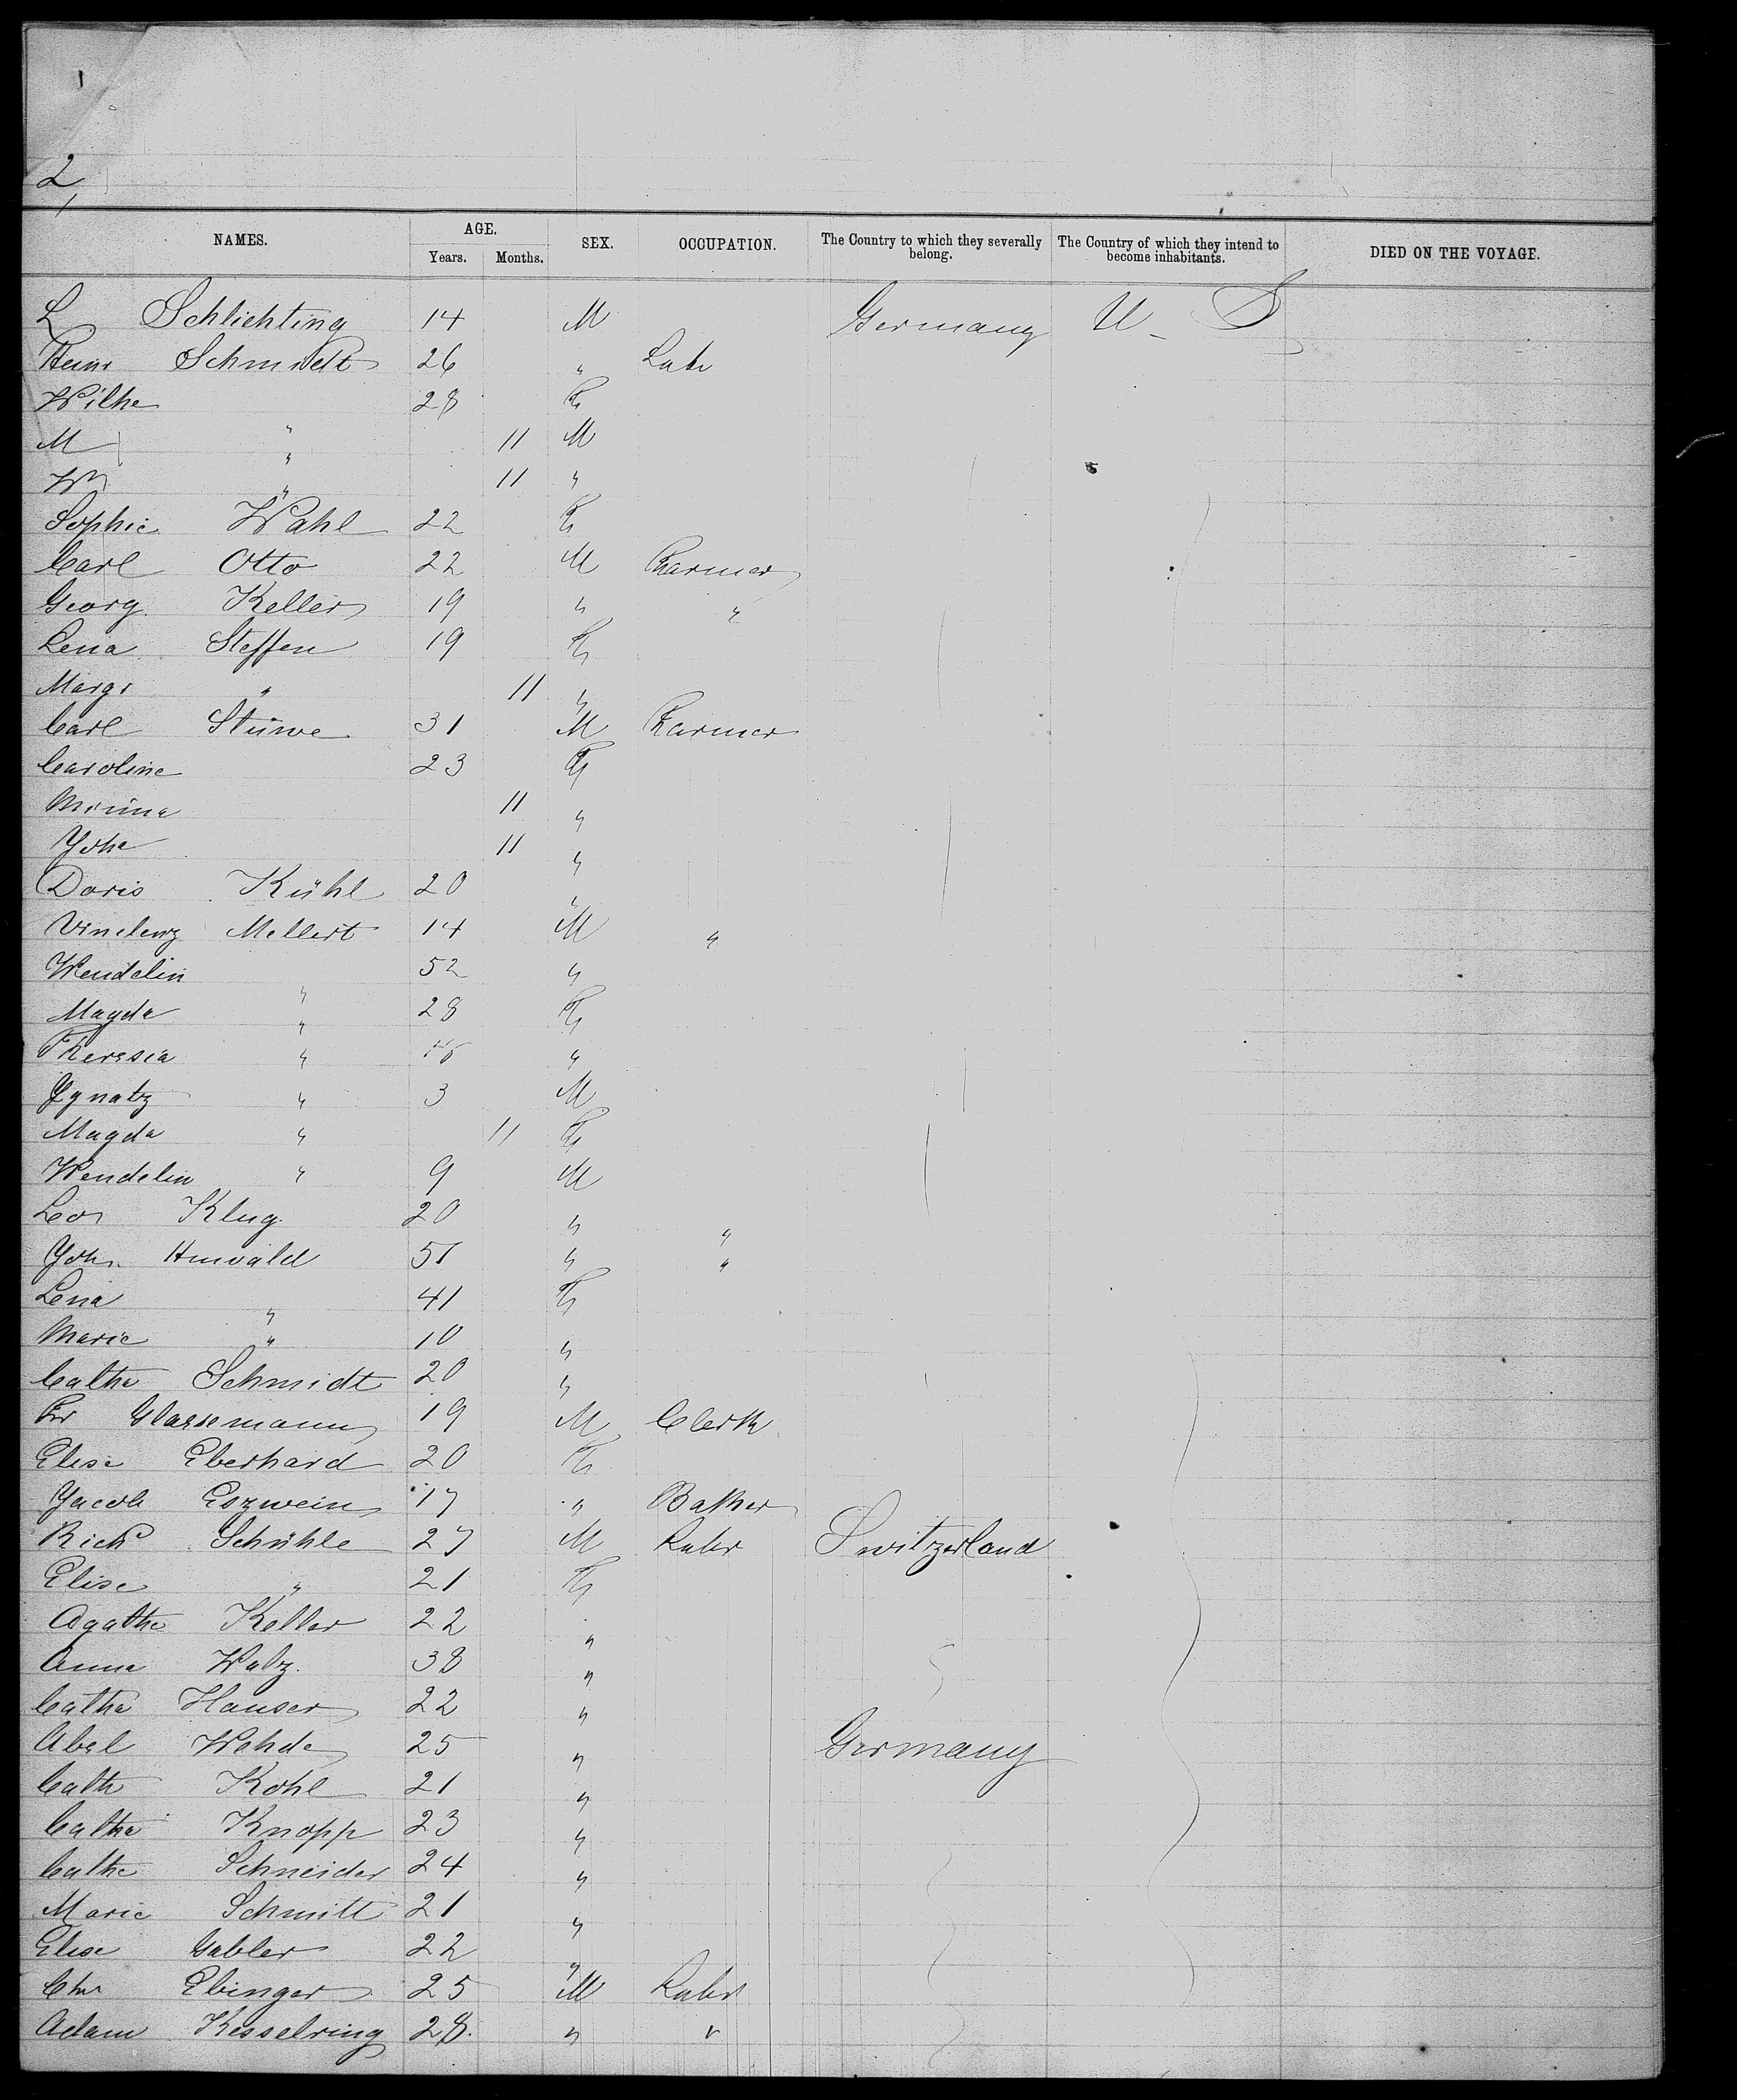 2
NAMES. AGE. SEX. OCCUPATION. The Country to which they severally belong. The Country of which they intend to become inhabitants. DIED ON THE VOYAGE.
Years. Months.
L Schlichting 14 M Germany U S
Heinr Schmidt 26 " Labr
Wilhe 28 F
M " 11 M
Wm " 11 "
Sophie Wahl 22 F
Carl Otto 22 M Farmer
Georg Keller 19 " "
Lena Steffen 19 F
Margr " 11 "
Carl Stüwe 31 M Farmer
Caroline 23 F
Minna 11 "
Johe 11 "
Doris Kühl 20 "
Vincenz Mellert 14 M "
Wendelin " 52 "
Magda " 28 F
Theresia " "
Ignatz " 3 M
Magda " 11 F
Wendelin " 9 M
Leo Klug 20 " "
Joh. 51 " "
Lena " 41 F
Marie " 10 "
Cathe Schmidt 20 "
Fr 19 M Clerk
Elise Eberhard 20 F
Jacob Eszwein 17 " Baker
Rich Schühle 27 M Labr Switzerland
Elise " 21 F
Agathe Keller 22 "
Anna Walz. 38 "
Cathe Hauser 22 "
Abel Wohde 25 " Germany
Cath Kohl 21 "
Cathe Knopp 23 "
Cathe Schneider 24 "
Marie Schmitt 21 "
Elise Gabler 22 "
Chr Ebinger 25 M Labr
Adam Kesselring 28. " "